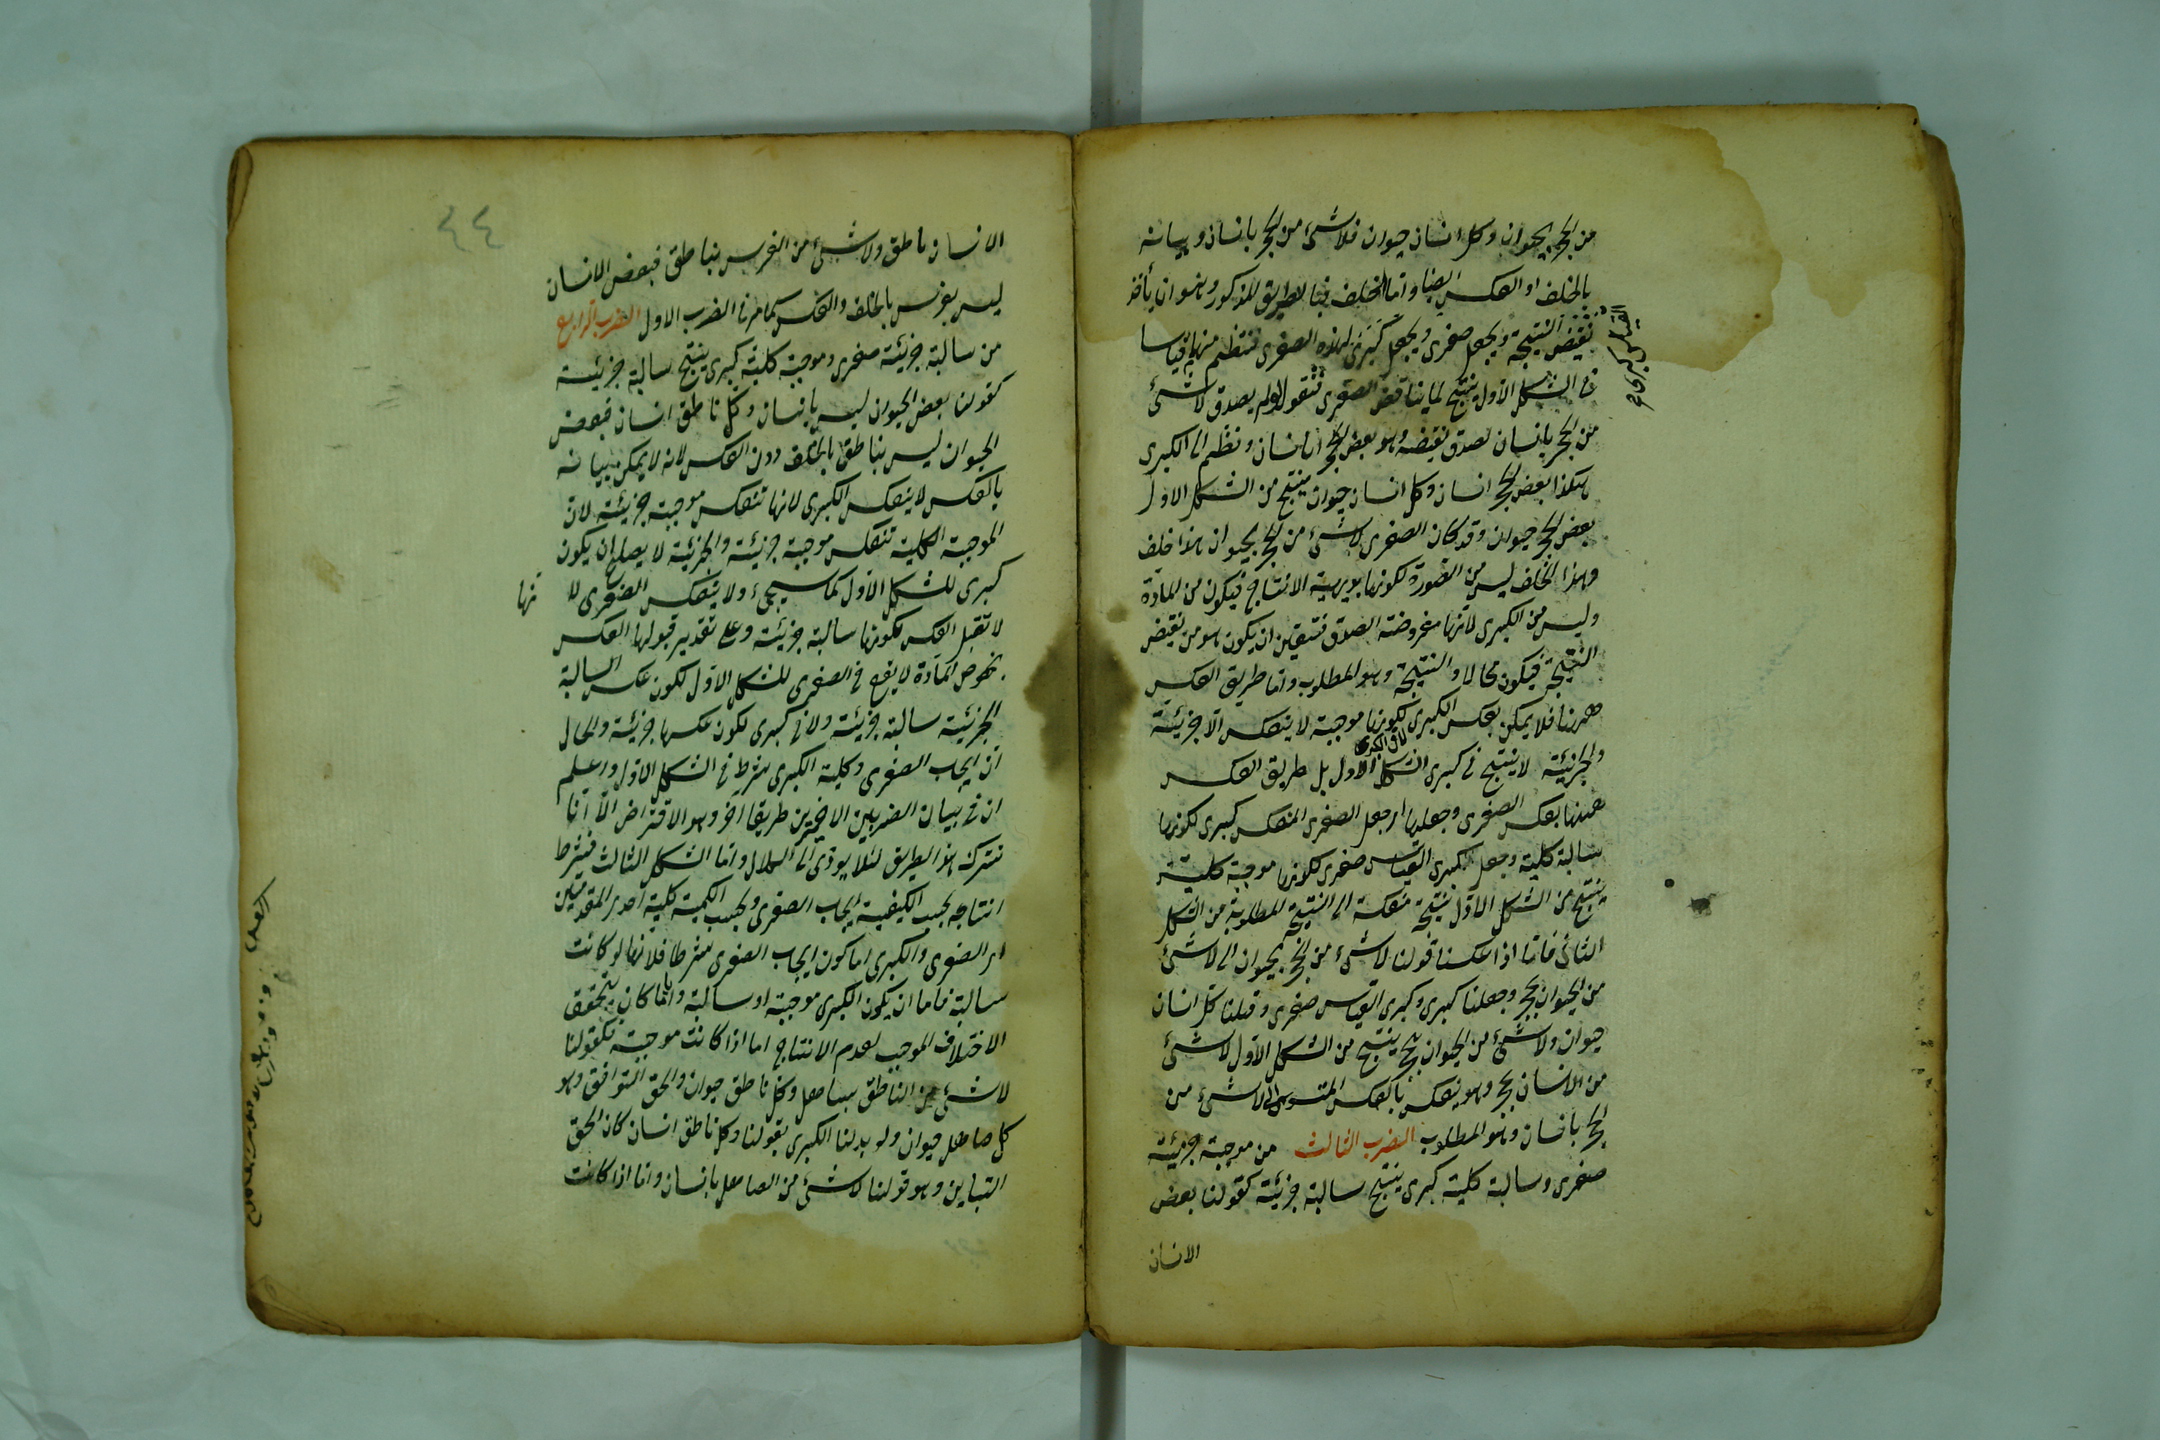 من الحجر بحيوان وكل انسان حيوان فلا شئ من الحجر بانسان وبيانه
بالخلف او العكس ايضا واما الخلف فبالطريق المذكور وهو ان يأخذ
نقيض النتيجة ويجعل صغرى ويجعل كبرى لهذه الصغرى فتنظم منهما قياسا
القياس كبرى
فى الشكل الاول ينتج لما يناقض الصغرى فنقول لو لم يصدق لا شئ
من الحجر بانسان لصدق نقيضه وهو بعض الحجر انسان ونظم الى الكبرى
هكذا بعض الحجر انسان وكل انسان حيوان ينتج من الشكل الاول
بعض الحجر حيوان وقد كان الصغرى لا شئ من الحجر بحيوان هذا خلف
وهذا الخلف ليس من الصورة لكونها بديهية الانتاج فيكون من المادة
وليس من الكبرى لانها مفروضة الصدق فتعين ان يكون هو من نقيض
النتيجة فيكون محالا والنتيجة وهو المطلوب واما طريق العكس
ههنا فلا يمكن بعكس الكبرى لكونها موجبة لا ينعكس الا جزئية
والجزئية لا ينتج فى كبرى الشكل الاول بل طريق العكس
لان الكبرى
ههنا بعكس الصغرى وجعلها اى جعل الصغرى المنعكس كبرى لكونها
سالبة كلية وجعل كبرى القياس صغرى لكونها موجبة كلية
ينتج من الشكل الاول نتيجة منعكسة الى النتيجة المطلوبة من الشكل
الثانى فانا اذا عكسنا قولنا لا شئ من الحجر بحيوان الى لا شئ
من الحيوان بحجر وجعلنا كبرى وكبرى القياس صغرى وقلنا كل انسان
حيوان ولا شئ من الحيوان بحجر ينتج من الشكل الاول لا شئ
من الانسان بحجر وهو ينعكس بالعكس المستوى الى لا شئ من
الحجر بانسان وهو المطلوب الضرب الثالث من موجبة جزئية
صغرى وسالبة كلية كبرى ينتج سالبة جزئية كقولنا بعض
الانسان
٤٤
الانسان ناطق ولا شئ من الفرس بناطق فبعض الانسان
ليس بفرس بالخلف والعكس كما مر فى الضرب الاول الضرب الرابع
من سالبة جزئية صغرى وموجبة كلية كبرى ينتج سالبة جزئية
كقولنا بعض الحيوان ليس بانسان وكل ناطق انسان فبعض
الحيوان ليس بناطق بالخلف دون العكس لانه لا يمكن بيانه
بالعكس لا ينعكس الكبرى لانها تنعكس موجبة جزئية لان
الموجبة الكلية تنعكس موجبة جزئية والجزئية لا يصلح ان يكون
كبرى للشكل الاول كما سيجئ ولا ينعكس الصغرى لا نها
لا تقبل العكس لكونها سالبة جزئية وعلى تقدير قبولها العكس
بخصوص المادة لا يقع فى الصغرى للشكل الاول لكون عكس السالبة
الجزئية سالبة جزئية ولا فى كبرى لكون عكسها جزئية والحال
ان ايجاب الصغرى وكلية الكبرى شرط فى الشكل الاول واعلم
ان فى بيان الضربين الاخيرين طريقا اخر وهو الافتراض الا انا
نترك هذا الطريق لئلا يودى الى الملال واما الشكل الثالث فشرط
انتاجه بحسب الكيفية ايجاب الصغرى وبحسب الكمية كلية احدى المقدمتين
اى الصغرى والكبرى اما كون ايجاب الصغرى شرطا فلانها لو كانت
سالبة فاما ان يكون الكبرى موجبة او سالبة وايا ما كان يتحقق
الاختلاف الموجب لعدم الانتاج اما اذا كانت موجبة فكقولنا
لا شئ من الناطق بصاهل وكل ناطق حيوان والحق التوافق وهو
كل صاهل حيوان ولو بدلنا الكبرى بقولنا وكل ناطق انسان كان الحق
التباين وهو قولنا لا شئ من الصاهل بانسان واما اذا كانت